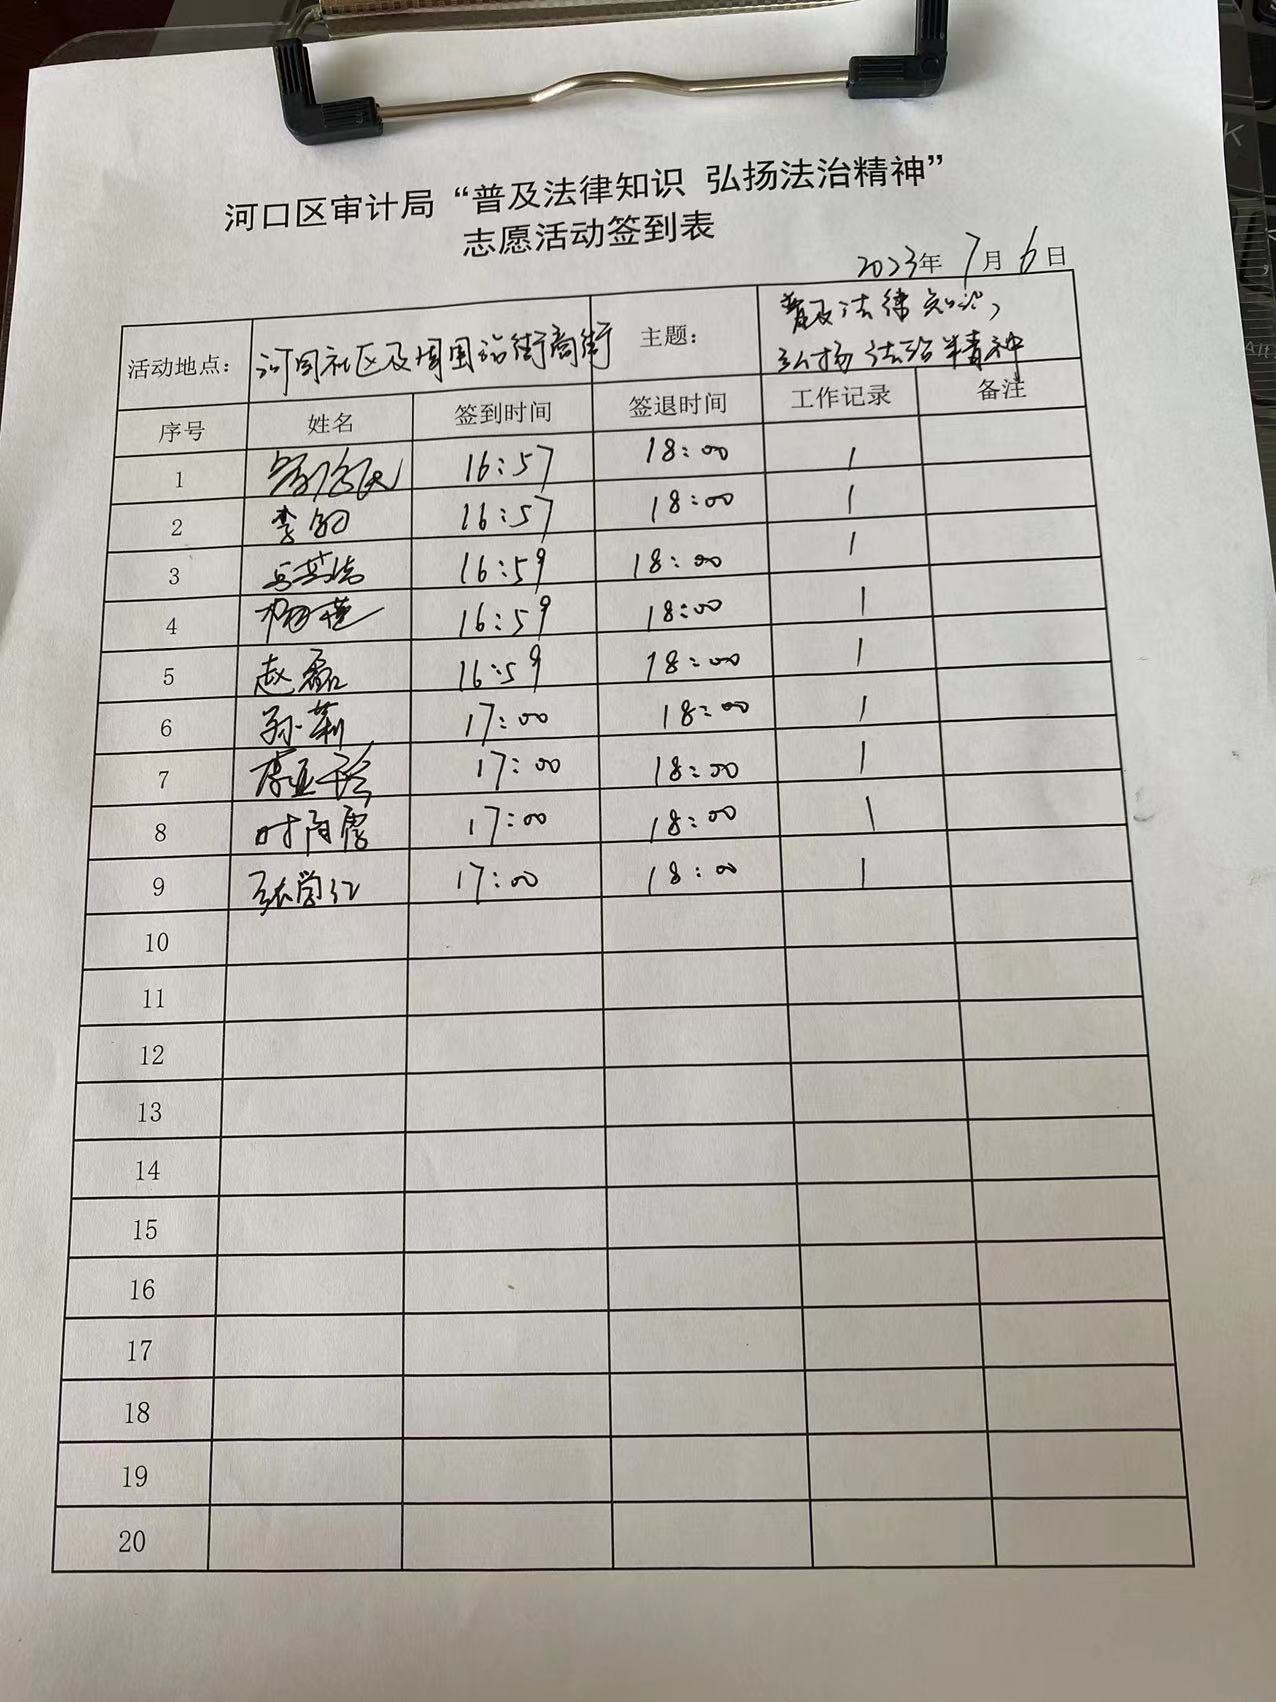 河口区审计局“普及法律知识 弘扬法治精神”
志愿活动签到表
2023年 7月 6日
活动地点： 社区及周围 街商街 主题： 普及法律知识，
弘扬法治精神
序号 姓名 签到时间 签退时间 工作记录 备注
1 16:57 18:00 1
2 16:57 18:00 1
3 16:59 18:00 1
4 16:59 18:00 1
5 赵磊 16:59 18:00 1
6 孙莉 17:00 18:00 1
7 17:00 18:00 1
8 17:00 18:00 1
9 张学江 17:00 18:00 1
10
11
12
13
14
15
16
17
18
19
20
K
Alt